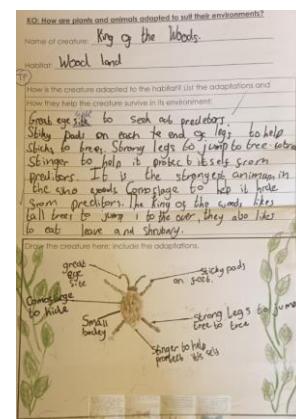 KO: How are plants and animals adapted to suit their environments?
Name of creature: King of the Woods.
Habitat: Wood land
TP
How is the creature adapted to the habitat? List the adaptations and
How they help the creature survive in its environment:
Great eye site to seek out preditors.
Stiky pads on each end of legs to help
Sticks to trees. Strong legs to jump to tree
Stinger to help it protect itself from
preditors. It is the strongest animan in
the woods Camoflage to help it hide
from preditors. The King of the woods likes
tall trees to jump to the over, they also likes
to eat leave and shrubary.
Draw the creature here; include the adaptations.
great eye site
Stickypads on foot.
Camoflage to hide
Strong Legs to jump tree to tree
Small bodey
Stinger to help protect its self